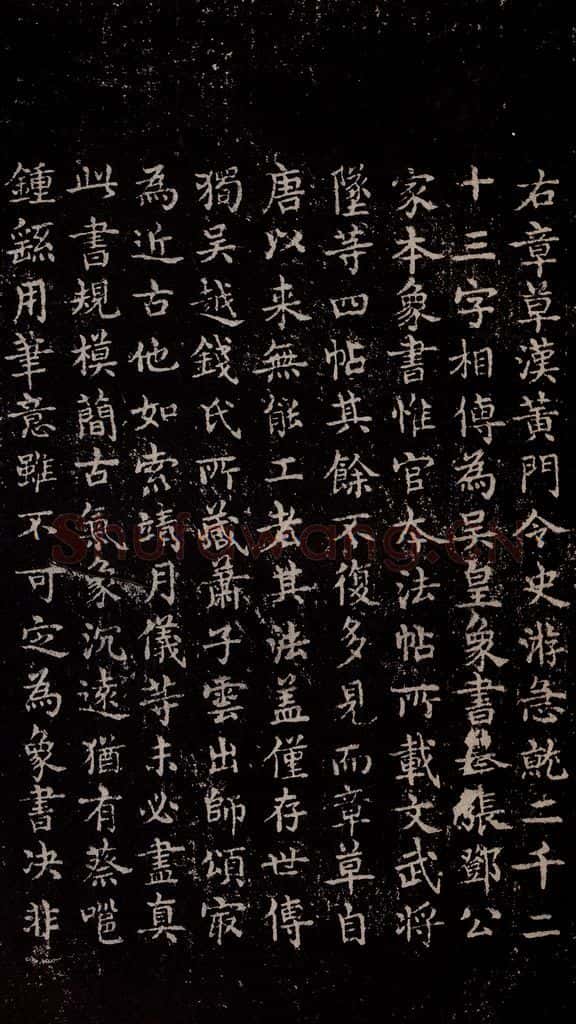 右章草漢黃門令史游急就二千二
十三字相傳為吳皇象書是張鄧公
家本象書惟官本法帖所載文武將
墜等四帖其餘不復多見而章草自
唐以来無能工者其法盖僅存世傳
獨吳越錢氏所藏蕭子雲出師頌㝡
為近古他如索靖月儀等未必盡真
此書規模簡古氣象沉遠猶有蔡邕
鍾繇用筆意雖不可定為象書决非
Shufawang.CN